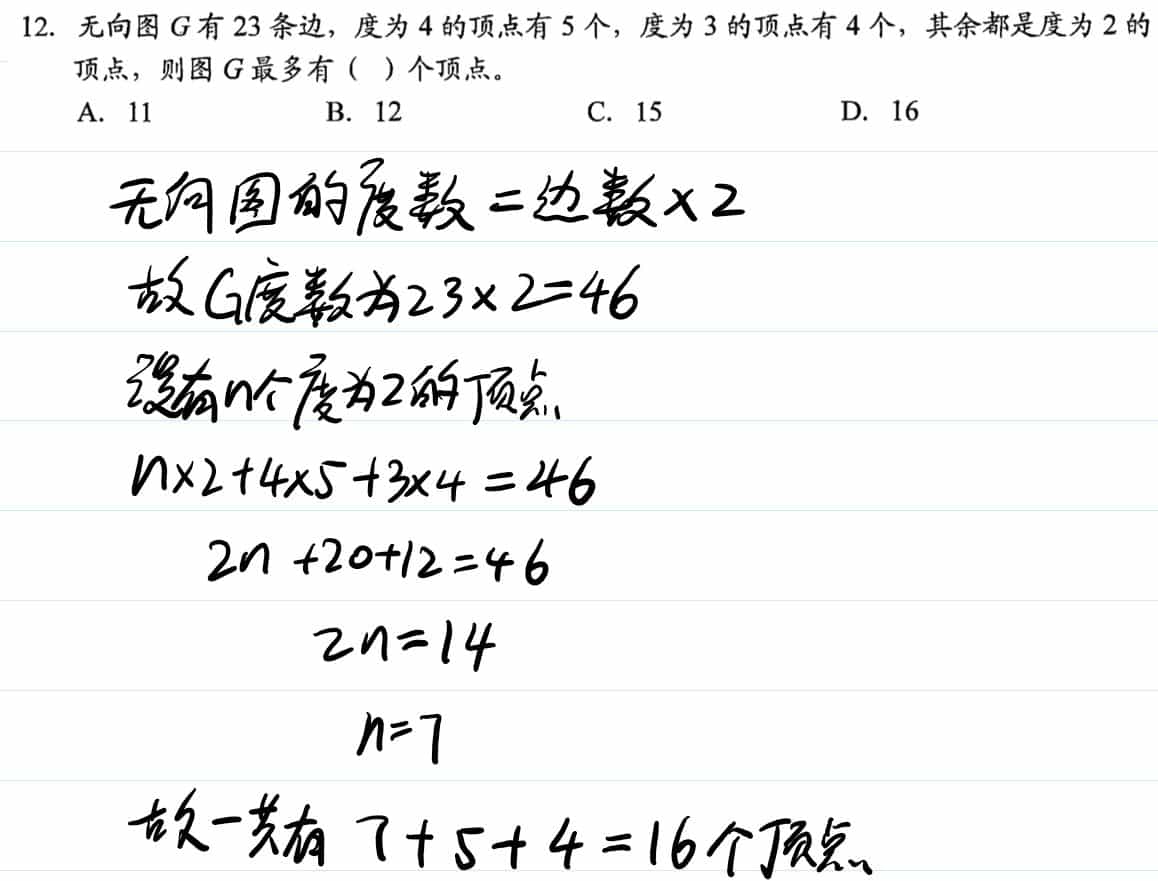 12. 无向图 G 有 23 条边，度为 4 的顶点有 5 个，度为 3 的顶点有 4 个，其余都是度为 2 的
顶点，则图 G 最多有（ ）个顶点。
A. 11 B. 12 C. 15 D. 16
无向图的度数=边数×2
故G度数为23×2=46
设有n个度为2的顶点
n×2+4×5+3×4=46
2n+20+12=46
2n=14
n=7
故一共有 7+5+4=16个顶点